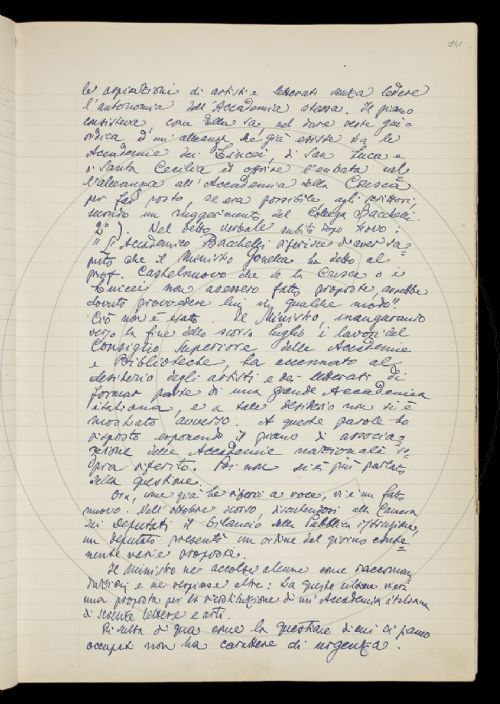 141
le aspirazioni di artisti e letterati senza ledere
l'autonomia dell'Accademia stessa. Il piano
consisteva, come Ella sa, nel dare veste giu-
ridica ad un'alleanza che già esiste tra le
Accademie dei Lincei, di San Luca e
di Santa Cecilia ed offrire l'entrata nel-
l'alleanza all'Accademia della Crusca
per far posto, se era possibile, agli scrittori,
secondo un suggerimento del Collega Bacchelli.
2°). Nel detto verbale subito dopo trovo:
"Il Accademico Bacchelli riferisce di aver sa-
puto che il Ministro Gonella ha detto al
prof. Castelnuovo che se la Crusca o i
Lincei non avessero fatto proposte avrebbe
dovuto provvedere lui in qualche modo".
Ciò non è esatto. Il Ministro inaugurando
verso la fine dello scorso luglio i lavori del
Consiglio Superiore delle Accademie
e Biblioteche, ha accennato al
desiderio degli artisti e dei letterati di
formar parte di una grande Accademia
italiana, e a tale desiderio non si è
mostrato avverso. A queste parole ho
risposto esponendo il piano di associa-
zione delle Accademie nazionali so-
pra riferito. Poi non si è più parlato
della questione.
Ora, come già le riferii a voce, vi è un fatto
nuovo. Nell'ottobre scorso, discutendosi alla Camera
dei deputati il bilancio della Pubblica istruzione,
un deputato presentò un ordine del giorno
varie proposte.
Il Ministro ne accolse alcune come raccoman-
dazioni e ne respinse altre: tra queste ultime
una proposta per la ricostituzione di un'Accademia italiana
di scienze lettere e arti.
Risulta di qua come la questione di cui ci siamo
occupati non ha carattere di urgenza.